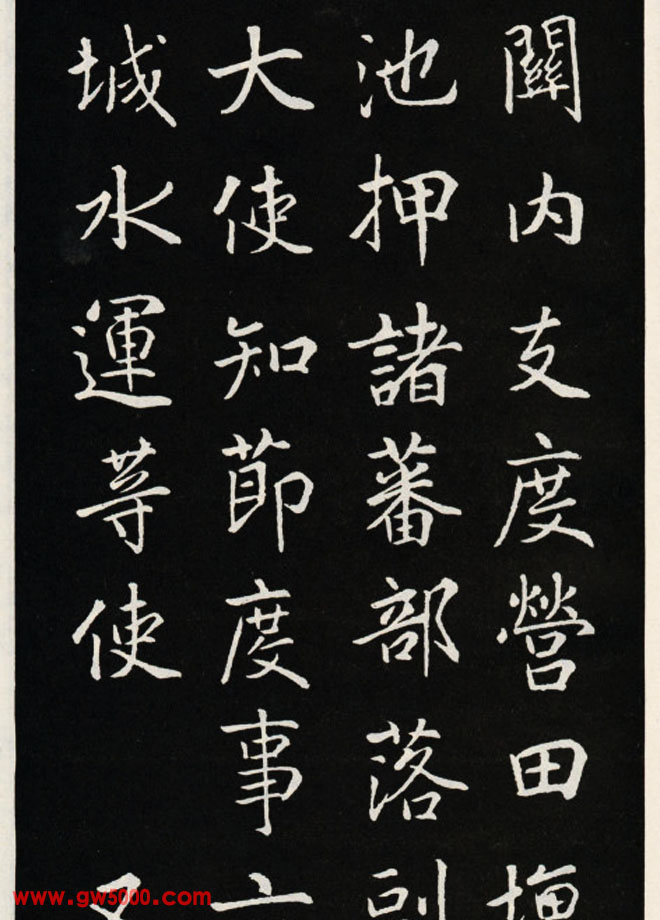 關内支度營田
池押諸蕃部落副
大使知節度事六
城水運等使
www.gw5000.com